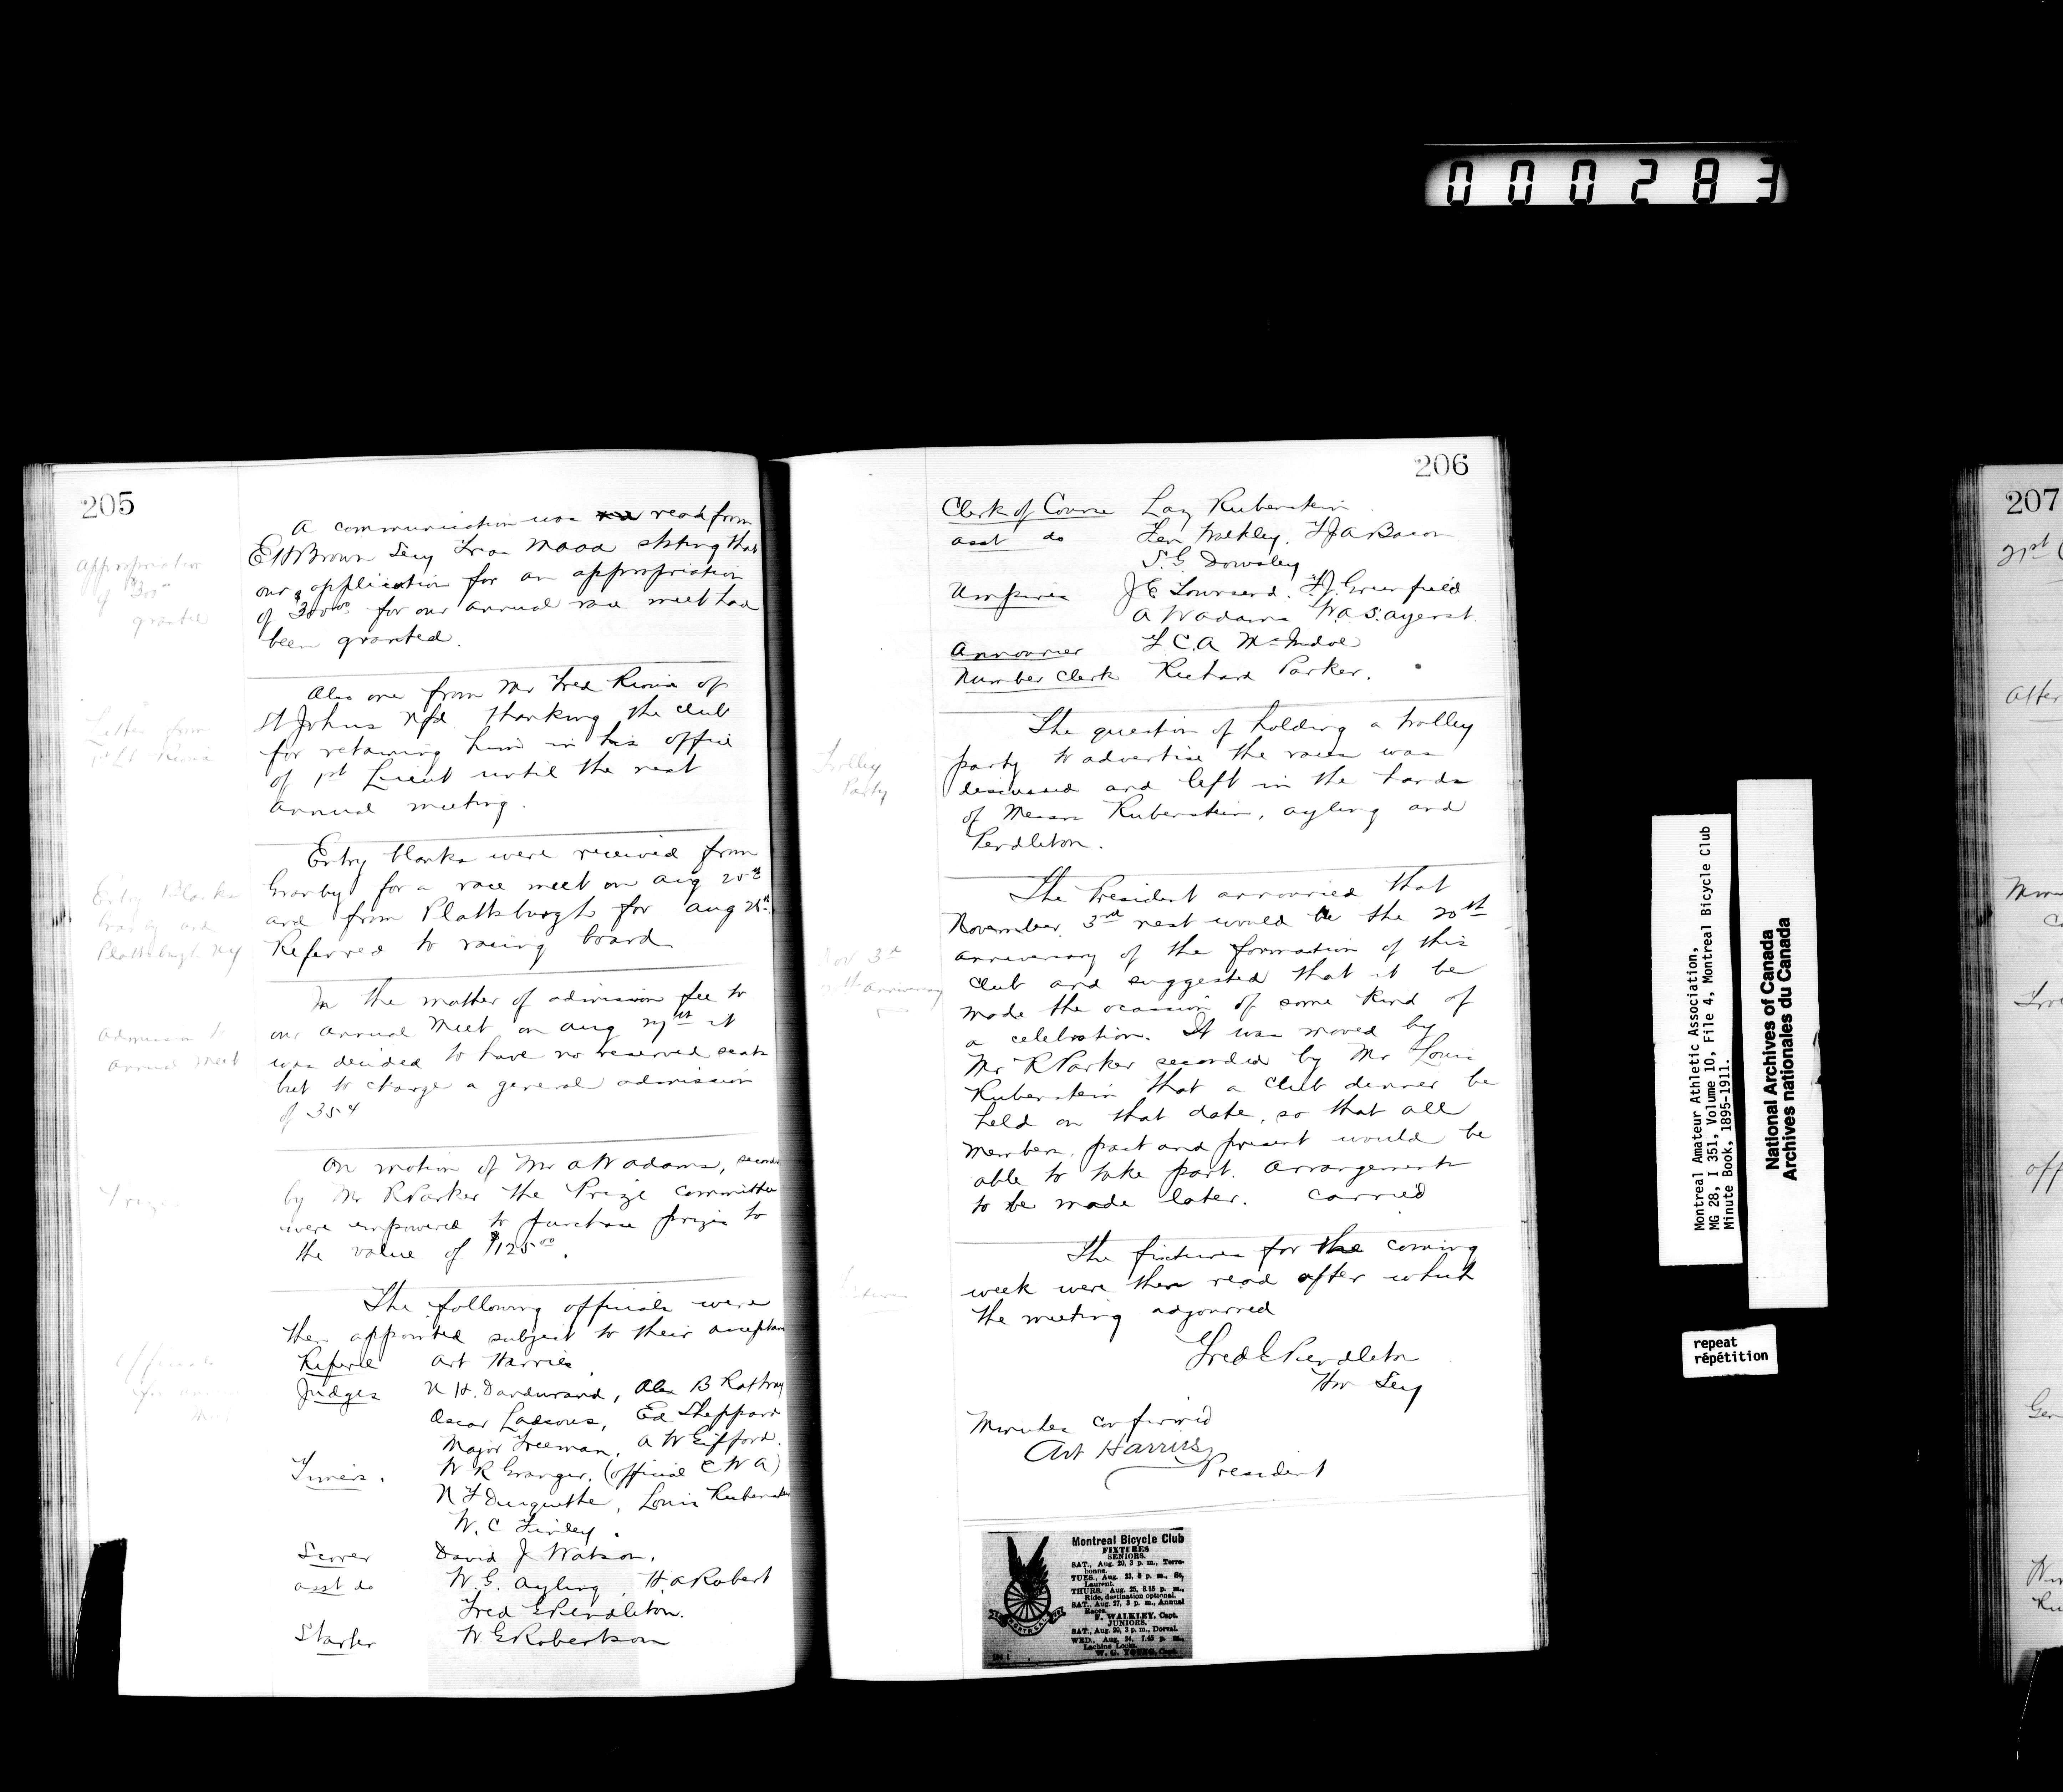 000283
205
A communication was read from
E H Brown Secy Treas MAAA stating that
our application for an appropriation
of $300.00 for our annual race meet had
been granted.
Appropriation
of $300
granted
Also one from Mr Fred of
St Johns Nfd thanking the club
for retaining him in his office
of 1st Lieut until the next
annual meeting.
Letter from
1st Lt
Entry blanks were received from
Granby for a race meet on Aug
and from Plattsburgh for Aug
Referred to racing board
Entry Blanks
Granby and
Plattsburgh NY
In the matter of admission fee to
our annual meet on Aug 27th it
was decided to have no reserved seats
but to charge a general admission
of 35¢
Admission to
annual meet
On motion of Mr A W Adams, second
by Mr R Parker the Prize committee
were empowered to purchase prizes to
the value of $125.00.
Prizes
The following officials were
then appointed subject to their acceptance
Officials
for annual
Meet
Referee Art Harries
Judges N H. Dandurand, Alex B Rattray
Oscar Ladsous, Ed Sheppard
Major Freeman, A W Gifford.
Timers. W R Granger, (official C W A)
N F Duquette, Louis Rubenstein
W. C Finley.
Scorer David J Watson.
asst do W. G. Ayling, H A Robert
Fred E Pendleton.
Starter W E Robertson
206
Clerk of Course Laz Rubenstein
asst do Walkley, F J A Bacon
S. G Dowsley
Umpires J E Townsend. F. J. Greenfield
A W Adams W. A. S. Ayerst.
Announcer F C. A McIndoe
Number Clerk Richard Parker.
The question of holding a trolley
party to advertise the races was
discussed and left in the hands
of Messrs Rubenstein, Ayling and
Pendleton.
Trolley
Party
The President announced that
November 3rd next would be the 20th
anniversary of the formation of this
club and suggested that it be
made the ocassion of some kind of
a celebration. It was moved by
Mr R Parker seconded by Mr Louis
Rubenstein that a club dinner be
held on that date, so that all
members, past and present would be
able to take part. Arrangements
to be made later. Carried
Nov 3rd
20th Anniversary
The fixtures for the coming
week were then read after which
the meeting adjourned
Fixtures
Fred E Pendleton
Hon Secy
Minutes confirmed
Art Harries
President
Montreal Bicycle Club
FIXTURES
SENIORS.
SAT., Aug. 20, 3 p. m., Terre-
bonne.
TUES., Aug. 23, 8 p. m., St.
Laurent.
THURS. Aug. 25, 8.15 p. m.,
Ride, destination optional.
SAT., Aug. 27, 3 p. m., Annual
Races.
F. WALKLEY, Capt.
JUNIORS.
SAT., Aug. 20, 3 p. m., Dorval.
WED., Aug. 24, 7.45 p. m.,
Lachine Locks.
W. G. YOUNG, Capt.
MONTREAL
Montreal Amateur Athletic Association,
MG 28, I 351, Volume 10, File 4, Montreal Bicycle Club
Minute Book, 1895-1911.
National Archives of Canada
Archives nationales du Canada
repeat
répétition
207
21st